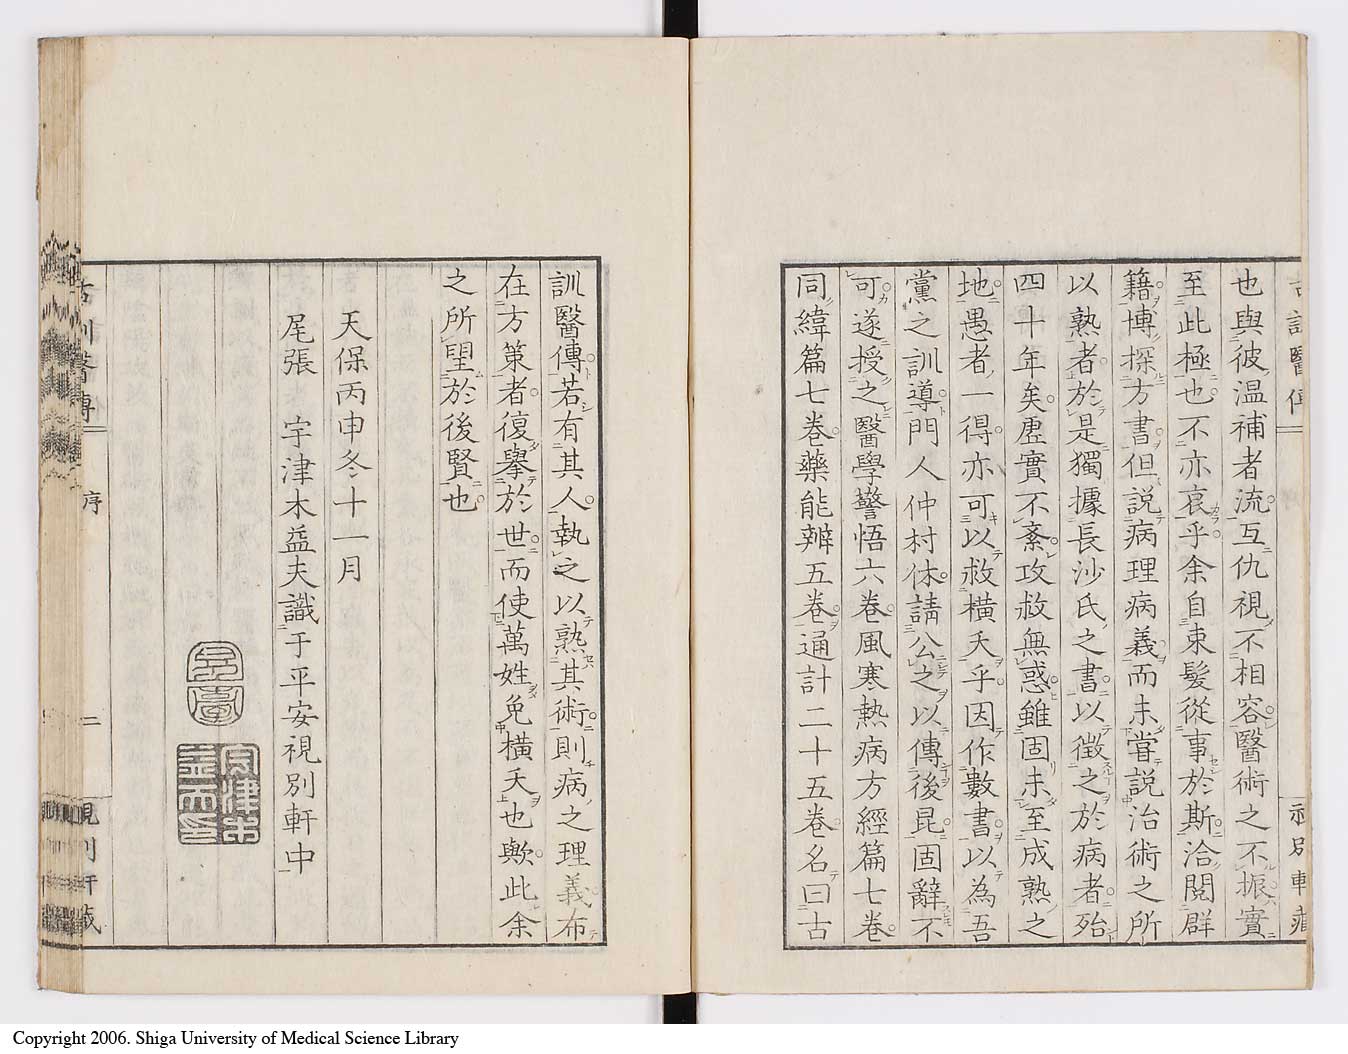 古訓醫傳
視別軒藏
也與彼溫補者流互仇視不相容醫術之不振實
至此極也不亦哀乎余自束髮從事於斯洽閱群
籍博探方書但說病理病義而未嘗說治術之所
以熟者於是獨據長沙氏之書以徵之於病者殆
四十年矣虛實不紊攻救無惑雖固未至成熟之
地愚者一得亦可以救橫夭乎因作數書以為吾
黨之訓導門人仲村休請公之以傳後昆固辭不
可遂授之醫學警悟六卷風寒熱病方經篇七卷
同緯篇七卷藥能辨五卷通計二十五卷名曰古
訓醫傳若有其人執之以熟其術則病之理義布
在方策者復擧於世而使萬姓免橫夭也歟此余
之所望於後賢也
天保丙申冬十一月
尾張 宇津木益夫識于平安視別軒中
古訓醫傳
序
二
視別軒藏
Copyright 2006. Shiga University of Medical Science Library